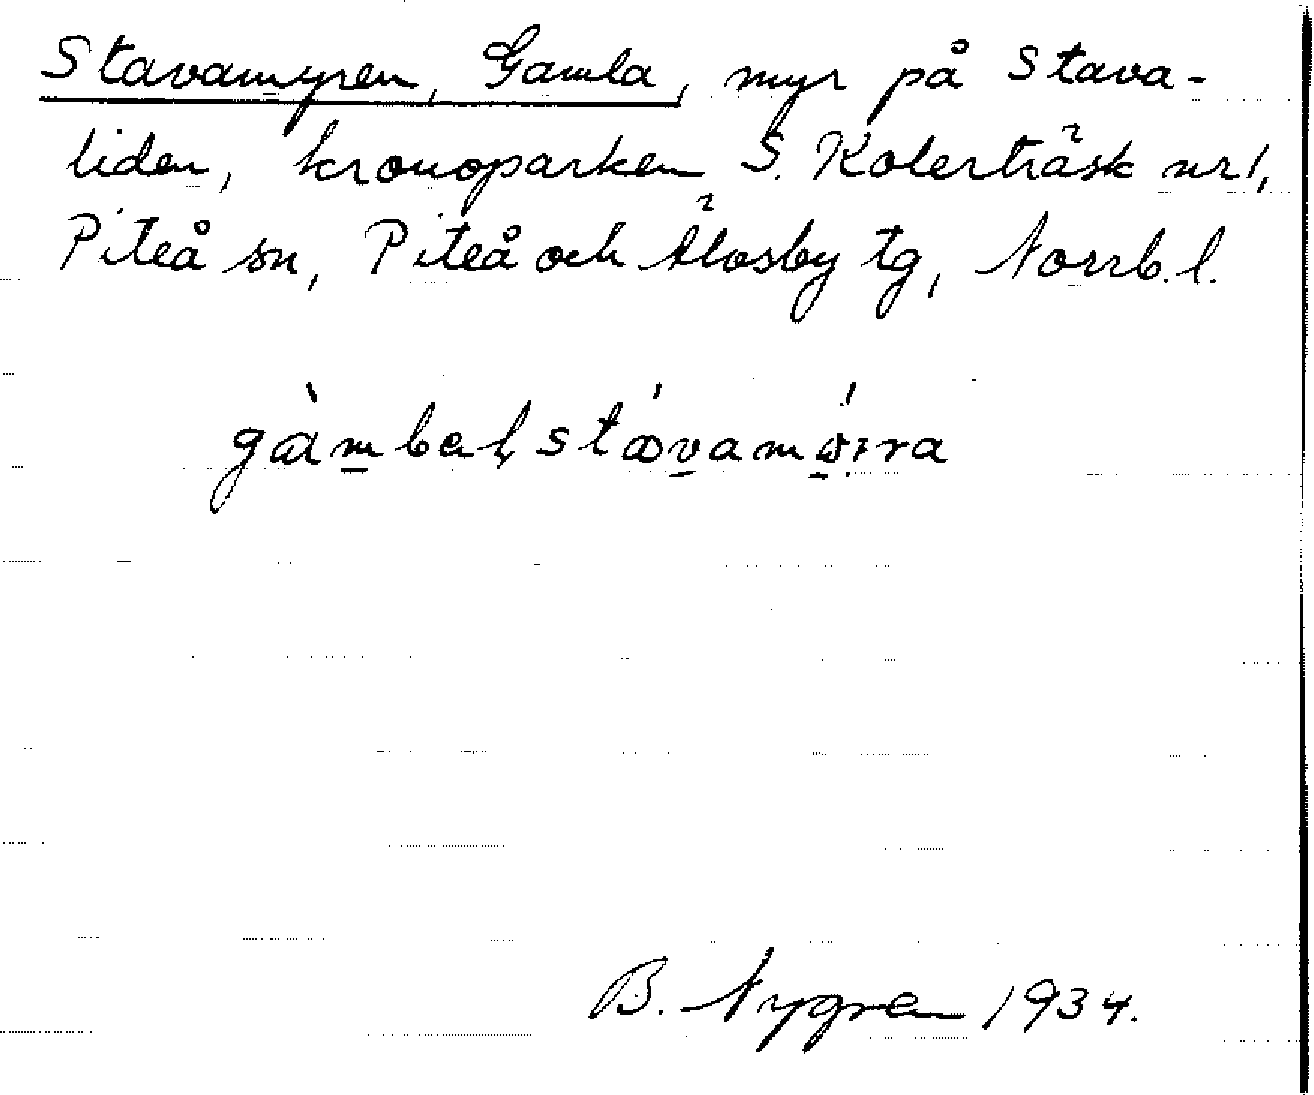 Stavamyren, Gamla, myr på Stava-
liden, kronoparken S. Kolerträsk nr 1,
Piteå sn, Piteå och Älvsby tg, Norrb. l.
B. Nygren 1934.